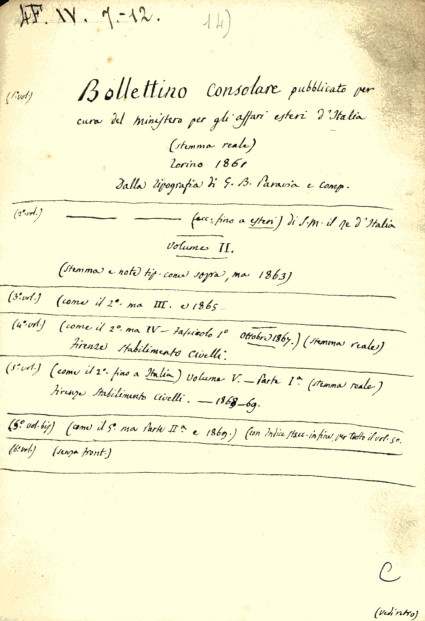 4F. IV. 7.-12. 14)
(1º vol) Bollettino Consolare pubblicato per
cura del ministero per gli affari esteri d'Italia
(stemma reale)
Torino 1861
Dalla Tipografia di G. B. Paravia e comp.
(2º vol.) (ecc. fino a esteri) di S. M. il Re d'Italia
Volume II.
(stemma e note tip. come sopra, ma 1863)
(3º vol.) (come il 2º. ma III. e 1865
(4º vol) (come il 2º. ma IV - Fascicolo 1º Ottobre 1867.) (stemma reale)
Firenze Stabilimento Civelli.
(5º vol.) (come il 2º. fino a Italia) Volume V. - Parte Iª (stemma reale)
Firenze Stabilimento Civelli. - 1868-69.
(5º vol. bis) (come il 5º. ma Parte IIª e 1869.) (con Indice stacc. in fine, per tutto il vol. 5º.
(6º vol) (senza front.)
C
(vedi retro)